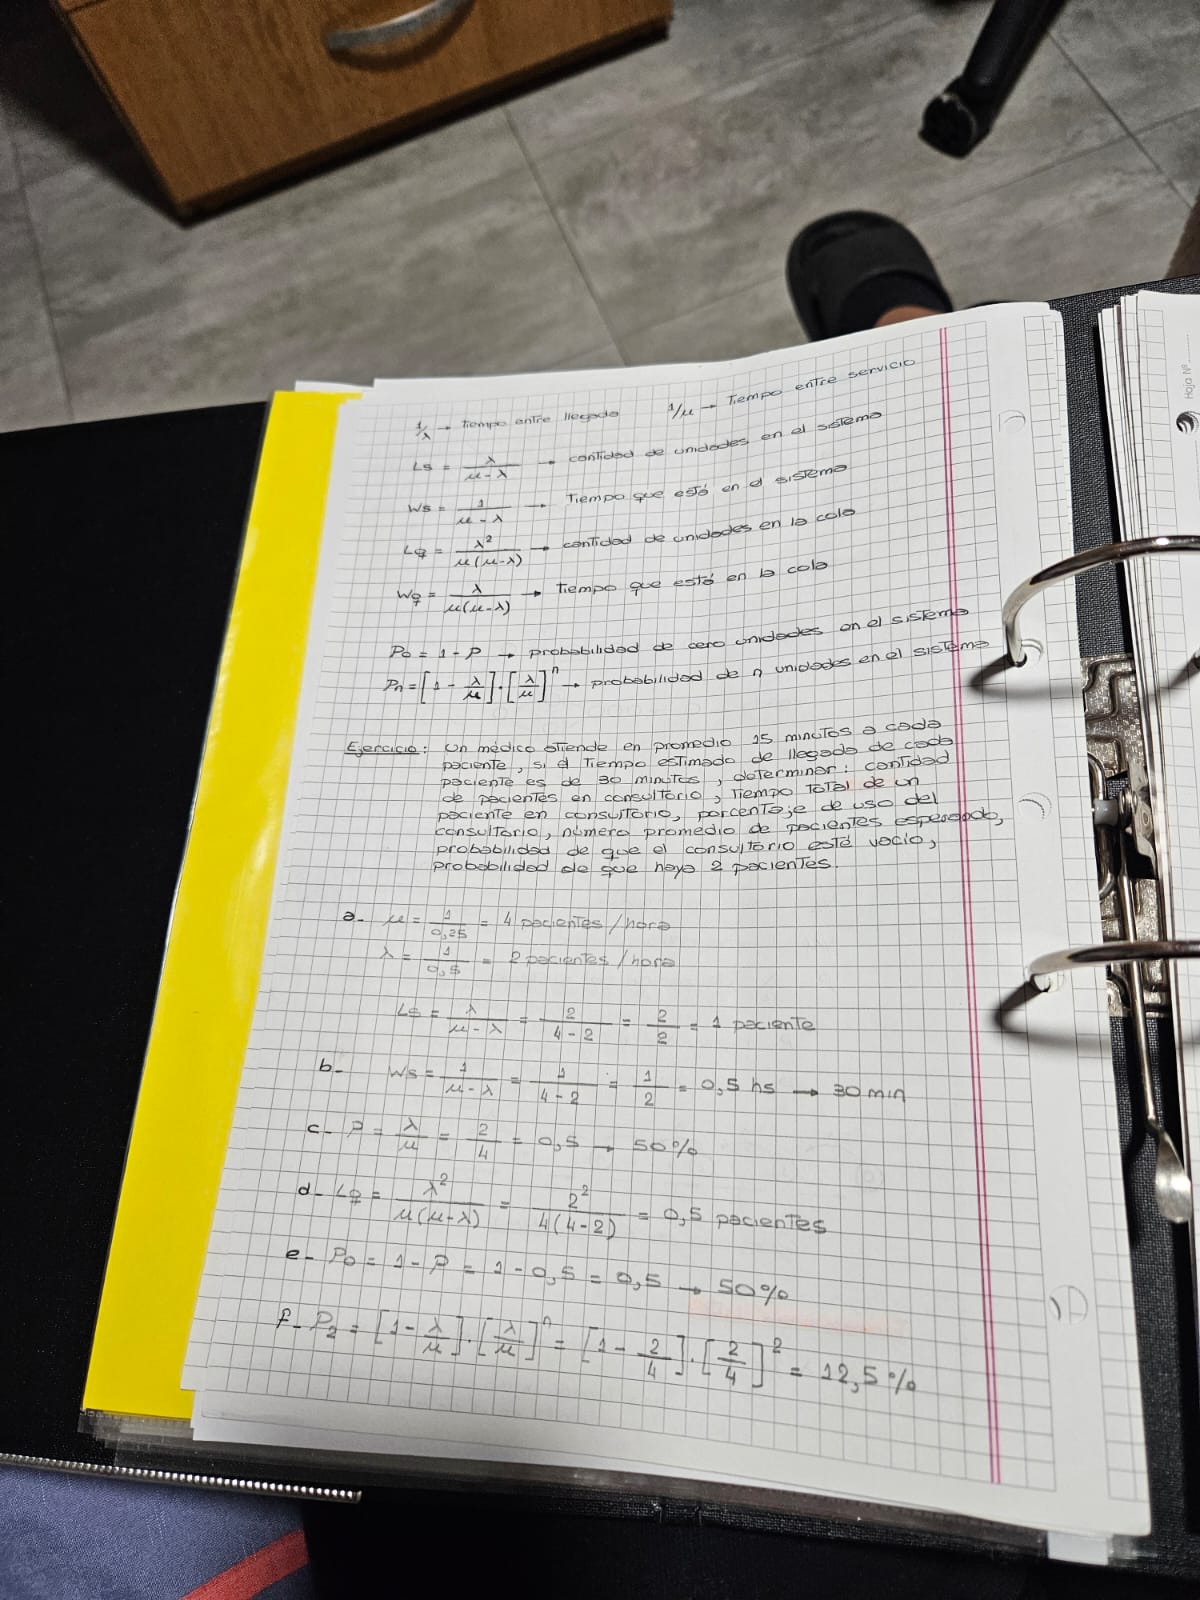 1/λ → tiempo entre llegada 1/μ → Tiempo entre servicio
Ls = λ/(μ-λ) → cantidad de unidades en el sistema
Ws = 1/(μ-λ) → Tiempo que está en el sistema
Lq = λ²/(μ(μ-λ)) → cantidad de unidades en la cola
Wq = λ/(μ(μ-λ)) → Tiempo que está en la cola
Po = 1 - P → probabilidad de cero unidades en el sistema
Pn = [1 - λ/μ] . [λ/μ]^n → probabilidad de n unidades en el sistema
Ejercicio: Un médico atiende en promedio 15 minutos a cada
paciente, si el Tiempo estimado de llegada de cada
paciente es de 30 minutos, determinar: cantidad
de pacientes en consultorio, Tiempo Total de un
paciente en consultorio, porcentaje de uso del
consultorio, número promedio de pacientes esperando,
probabilidad de que el consultorio está vacío,
probabilidad de que haya 2 pacientes.
a- μ = 1/0,25 = 4 pacientes/hora
λ = 1/0,5 = 2 pacientes/hora
Ls = λ/(μ-λ) = 2/(4-2) = 2/2 = 1 paciente
b- Ws = 1/(μ-λ) = 1/(4-2) = 1/2 = 0,5 hs → 30 min
c- P = λ/μ = 2/4 = 0,5 → 50%
d- Lq = λ²/(μ(μ-λ)) = 2²/(4(4-2)) = 0,5 pacientes
e- Po = 1 - P = 1 - 0,5 = 0,5 → 50%
f- P2 = [1 - λ/μ] . [λ/μ]^n = [1 - 2/4] . [2/4]^2 = 12,5%
Hoja Nº